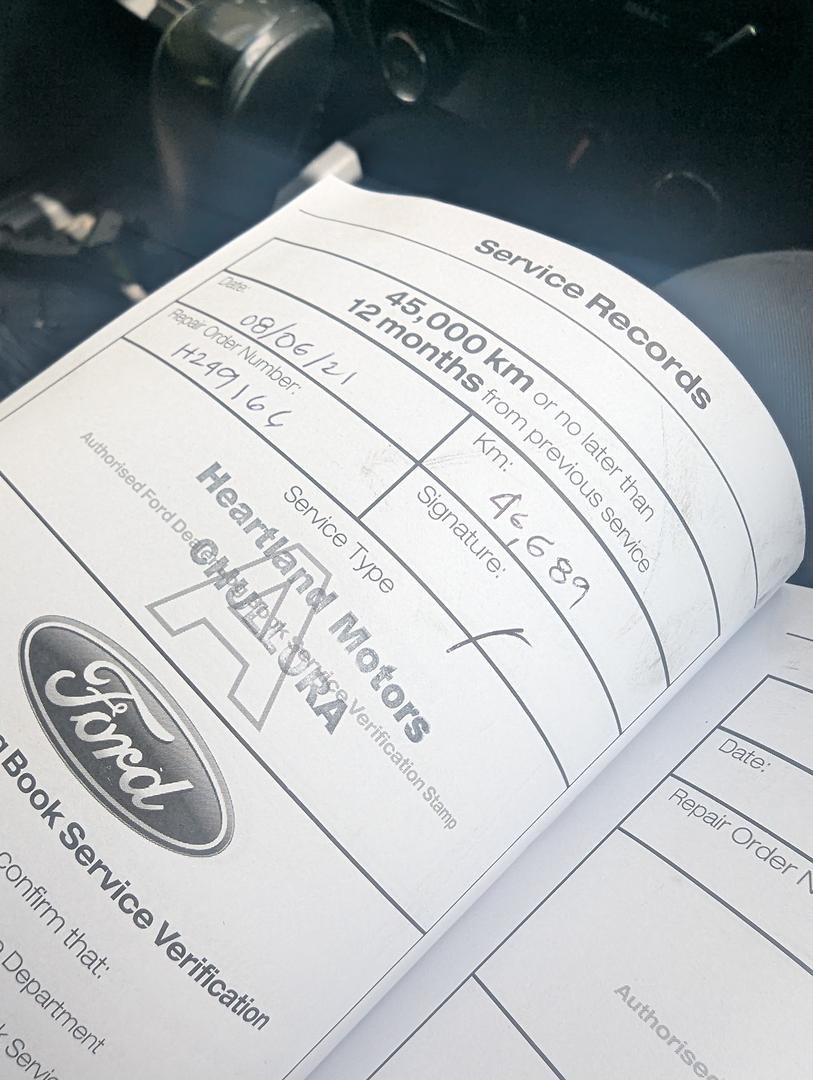 Service Records
45,000 km or no later than
12 months from previous service
Date: 08/06/21
Km: 46,689
Repair Order Number: H249166
Signature:
Service Type
A
Heartland Motors
CHULLORA
Authorised Ford Dealer Log Book Service Verification Stamp
Ford
Book Service Verification
confirm that:
Department
Service
Date:
Repair Order N
Authorised